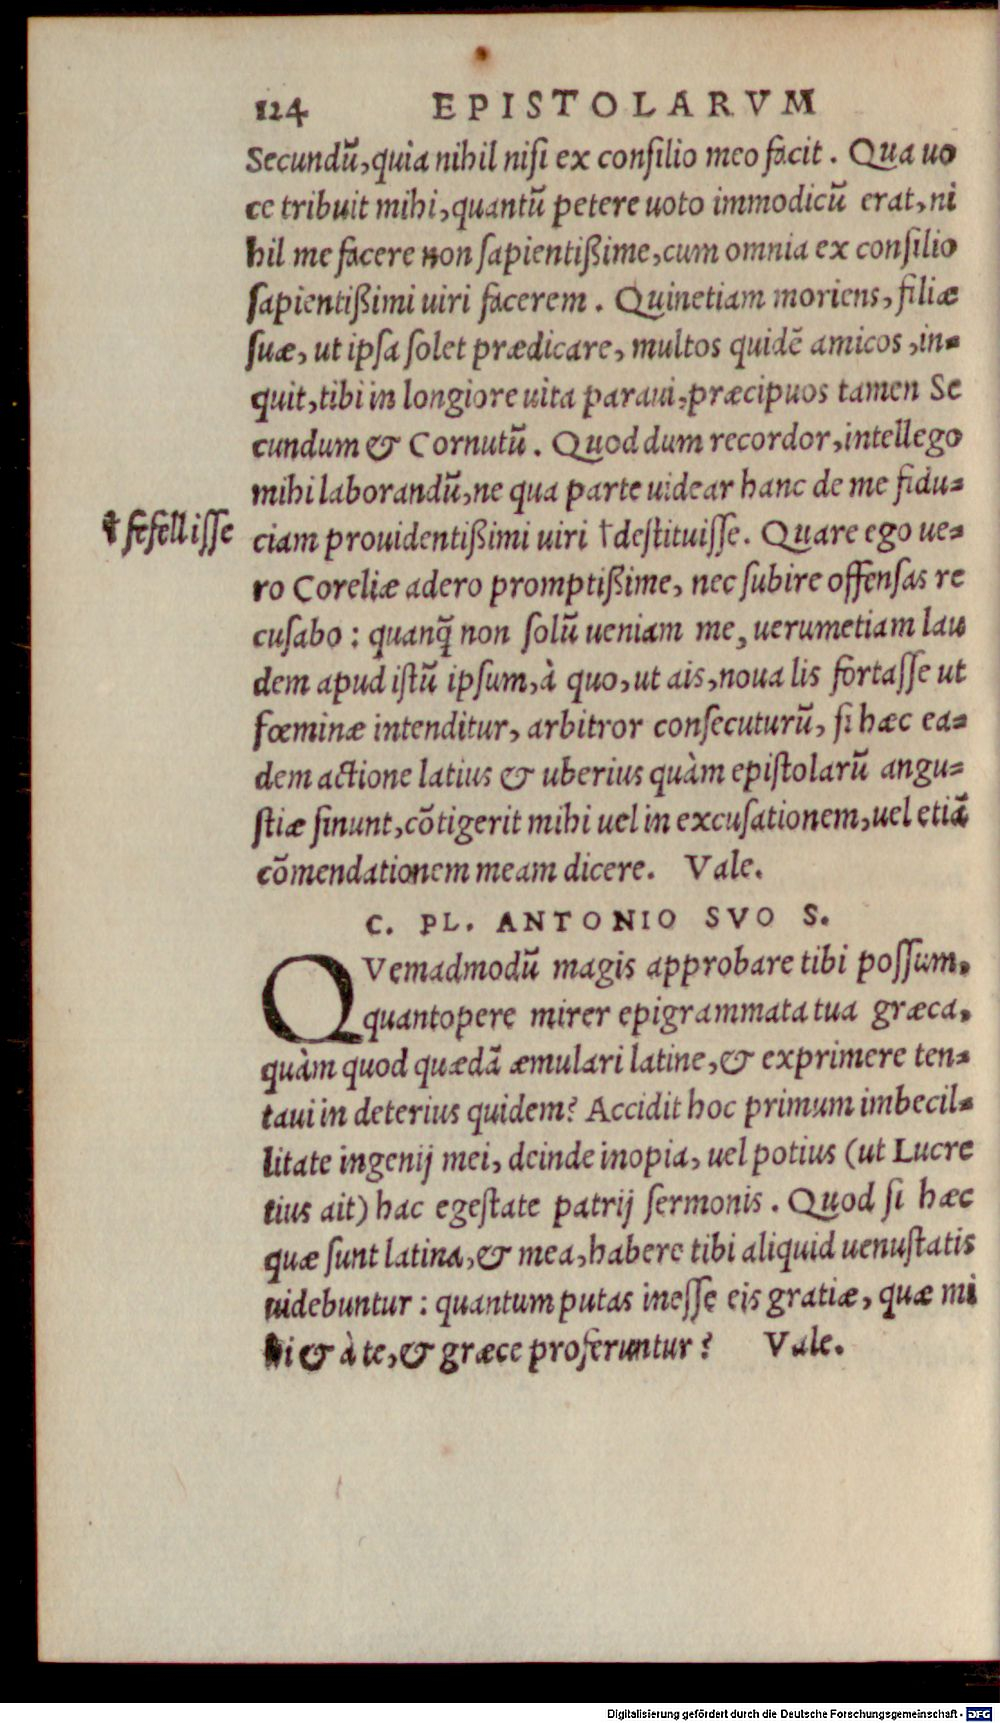 124 EPISTOLARVM
Secundũ, quia nihil niſi ex conſilio meo facit. Qua uo
ce tribuit mihi, quantũ petere uoto immodicũ erat, ni
hil me facere non ſapientißime, cum omnia ex conſilio
ſapientißimi uiri facerem. Quinetiam moriens, filiæ
ſuæ, ut ipſa ſolet prædicare, multos quidẽ amicos, in=
quit, tibi in longiore uita paraui, præcipuos tamen Se
cundum & Cornutũ. Quod dum recordor, intellego
mihi laborandũ, ne qua parte uidear hanc de me fidu=
† fefelliſſe
ciam prouidentißimi uiri †deſtituiſſe. Quare ego ue=
ro Coreliæ adero promptißime, nec ſubire offenſas re
cuſabo: quanq̃ non ſolũ ueniam me, uerumetiam lau
dem apud iſtũ ipſum, à quo, ut ais, noua lis fortaſſe ut
fœminæ intenditur, arbitror conſecuturũ, ſi hæc ea=
dem actione latius & uberius quàm epiſtolarũ angu=
ſtiæ ſinunt, cõtigerit mihi uel in excuſationem, uel etiã
cõmendationem meam dicere. Vale.
C. PL. ANTONIO SVO S.
QVemadmodũ magis approbare tibi poſſum,
quantopere mirer epigrammata tua græca,
quàm quod quædã æmulari latine, & exprimere ten=
taui in deterius quidem? Accidit hoc primum imbecil=
litate ingenij mei, deinde inopia, uel potius (ut Lucre
tius ait) hac egeſtate patrij ſermonis. Quod ſi hæc
quæ ſunt latina, & mea, habere tibi aliquid uenuſtatis
uidebuntur: quantum putas ineſſe eis gratiæ, quæ mi
hi & à te, & græce proferuntur? Vale.
Digitalisierung gefördert durch die Deutsche Forschungsgemeinschaft - DFG